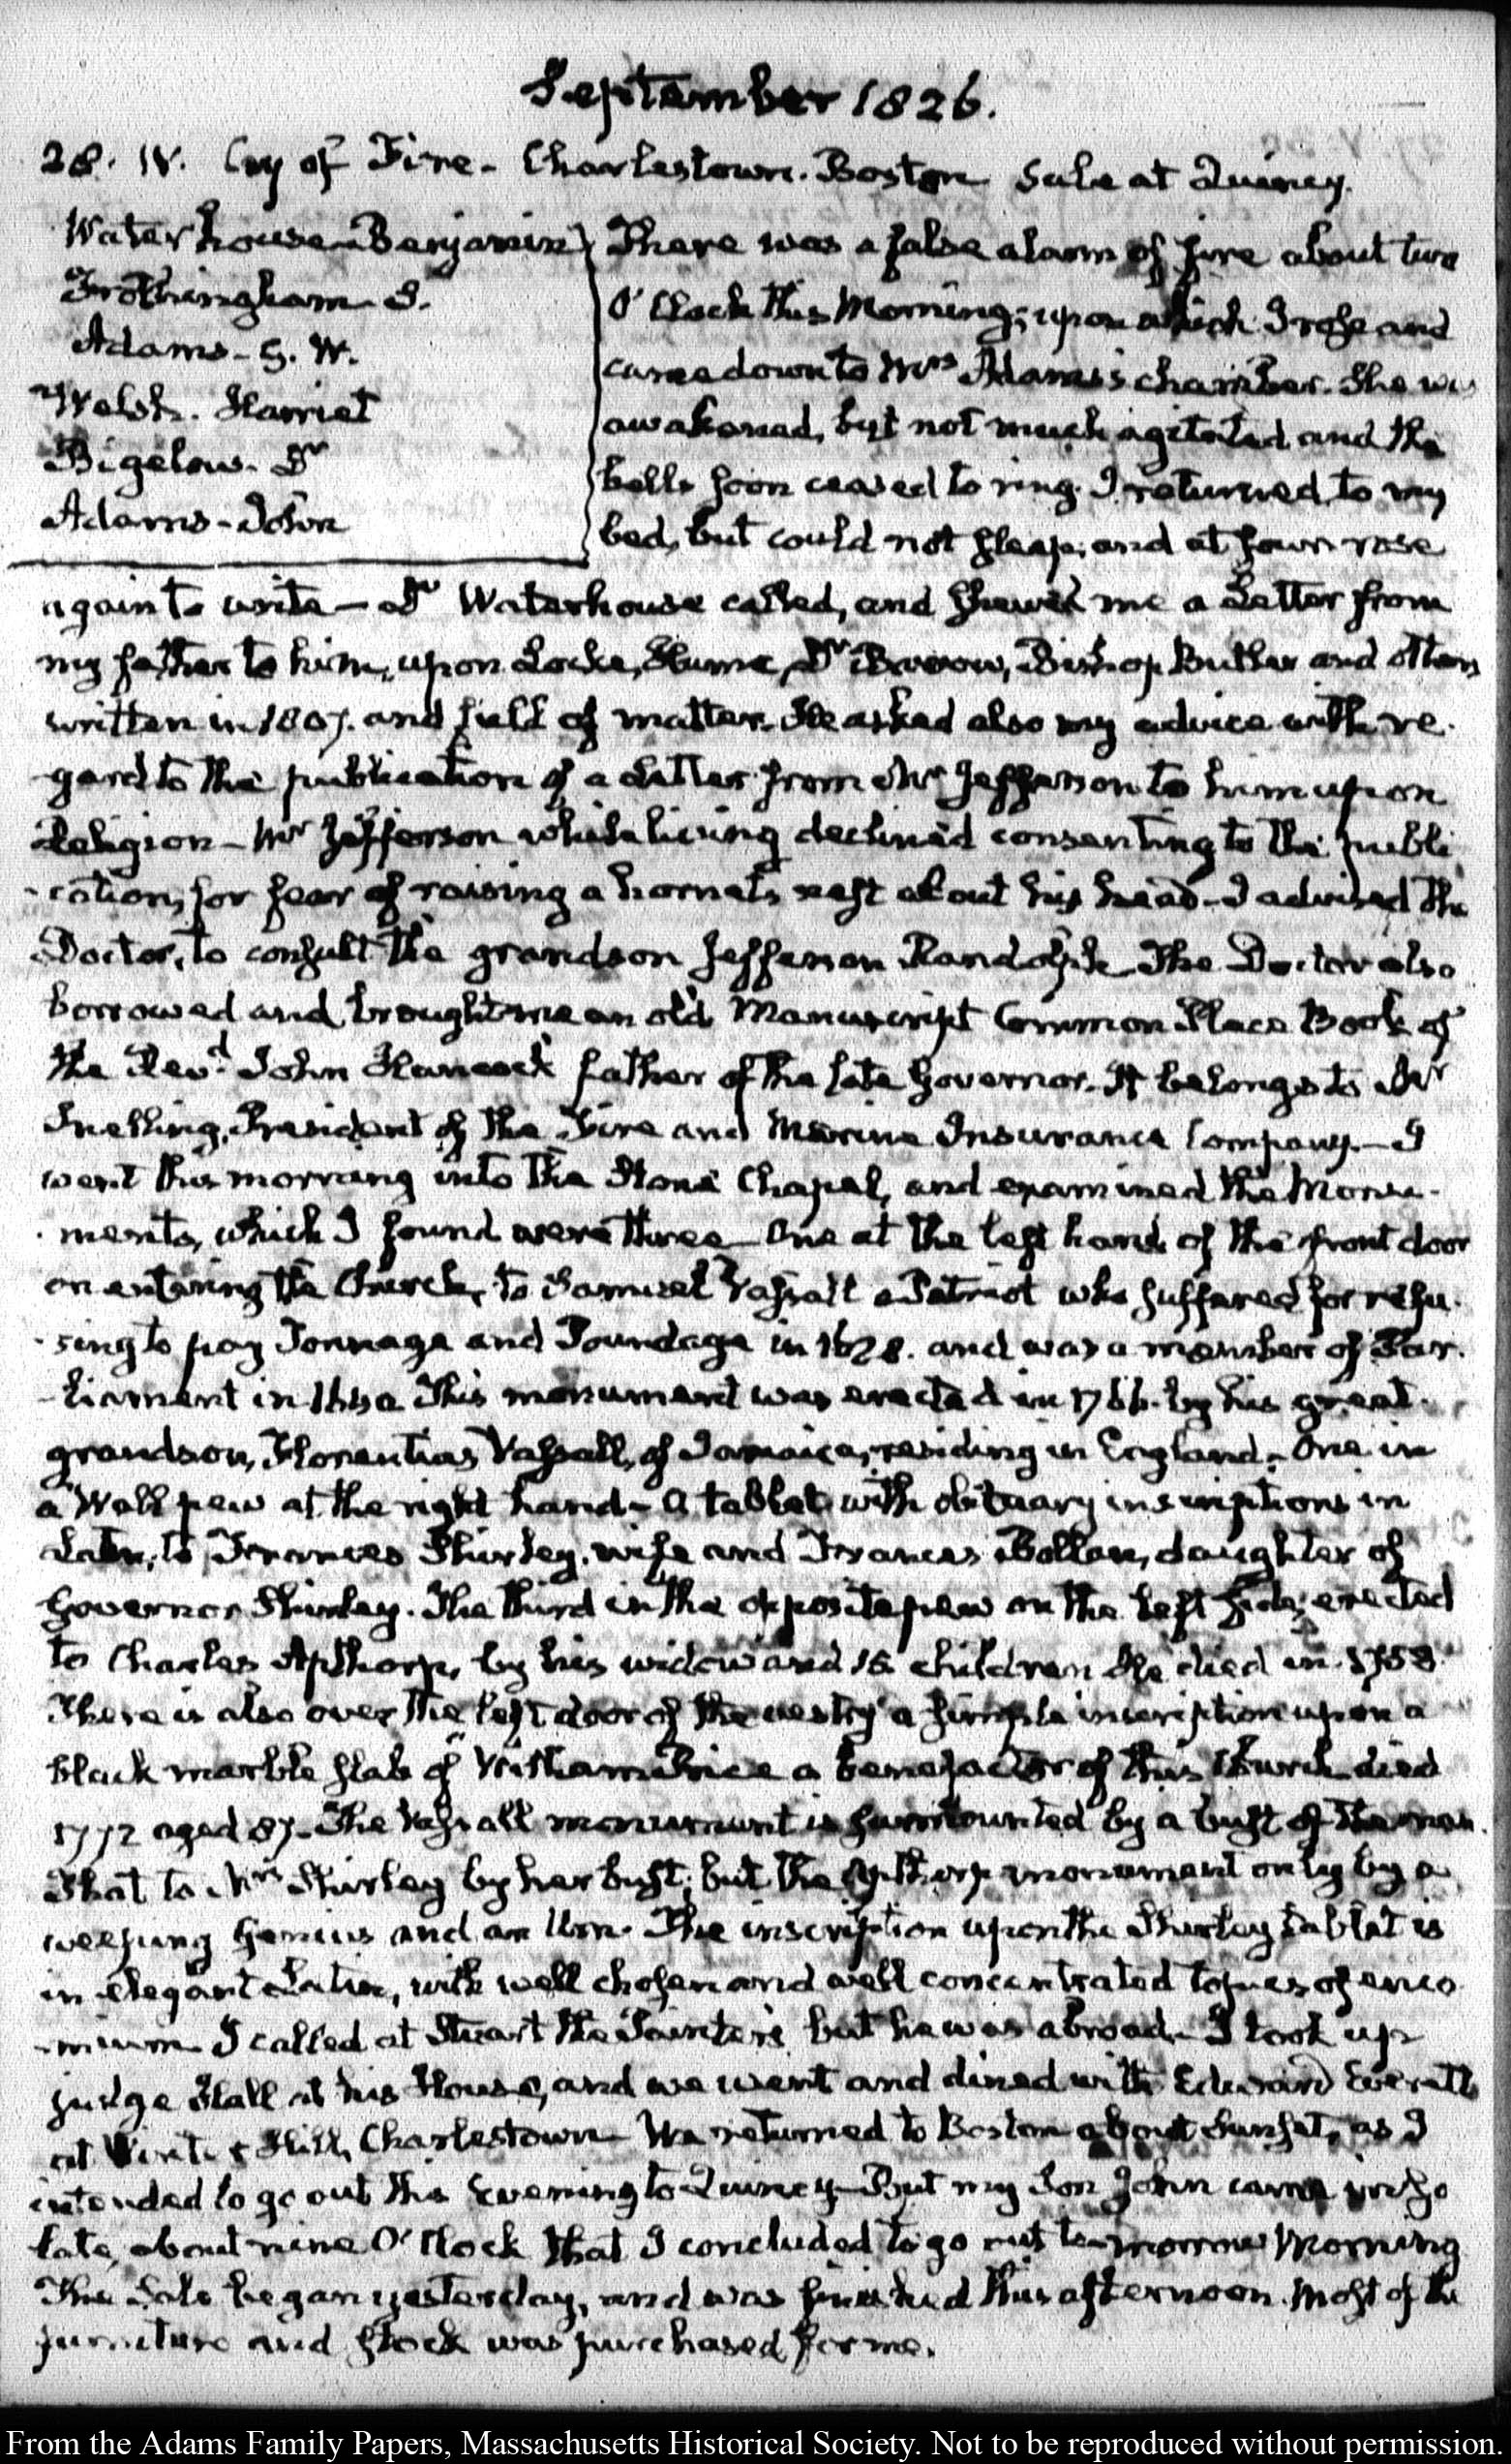 September 1826.
28. IV. Cry of Fire - Charlestown. Boston Sale at Quincy.
Waterhouse - Benjamin
Frothingham -
Adams - G. W.
Welsh. Harriet
Bigelow. Dr
Adams - John
There was a false alarm of fire about two
O'Clock this Morning; upon which I rose and
came down to Mrs Adams's chamber. She was
awakened, but not much agitated and the
bells soon ceased to ring. I returned to my
bed, but could not sleep, and at four rose
again to write — Dr Waterhouse called, and shewed me a Letter from
my father to him, upon Locke, Hume, Dr Barrow, Bishop Butler and others
written in 1807. and full of matter. He asked also my advice with re-
gard to the publication of a Letter from Mr Jefferson to him upon
Religion — Mr Jefferson while living declined consenting to the publi
-cation, for fear of raising a hornets nest about his head - I advised the
Doctor, to consult the grandson Jefferson Randolph. The Doctor also
borrowed and brought me an old Manuscript Common Place Book of
the Revd. John Hancock father of the late Governor. It belongs to Mr
Snelling, President of the Fire and Marine Insurance Company. — I
went this morning into the Stone Chapel, and examined the Monu-
-ments, which I found were three — One at the left hand of the front door
on entering the Church, to Samuel Vassall a Patriot who suffered for refu-
-sing to pay Tonnage and Poundage in 1628. and was a member of Par-
-liament in 1640. This monument was erected in 1766. by his great-
grandson, Florentius Vassall, of Jamaica, residing in England. - One in
a Wall pew at the right hand - a tablet with obituary inscriptions in
Latin, to Frances Shirley, wife and Frances Bollan, daughter of
Governor Shirley. The third in the opposite pew on the left side, erected
to Charles Apthorp, by his widow and 15 children. He died in 1758.
There is also over the left door of the vestry a simple inscription upon a
black marble slab of William Price a benefactor of this Church died
1772 aged 87. - The Vassall monument is surmounted by a bust of the man.
That to Mrs Shirley by her bust; but the Apthorp monument only by a
weeping Genius and an Urn. The inscription upon the Shirley tablet is
in elegant Latin, with well chosen and well concentrated topics of enco
-mium. I called at Stuart the Painter's but he was abroad. - I took up
judge Hall at his House, and we went and dined with Edward Everett
at Winter Hill, Charlestown. We returned to Boston about Sunset, as I
intended to go out this Evening to Quincy - But my Son John came in so
late, about nine O'Clock that I concluded to go out to-morrow Morning
The Sale began yesterday, and was finished this afternoon. Most of the
furniture and stock was purchased for me.
From the Adams Family Papers, Massachusetts Historical Society. Not to be reproduced without permission.